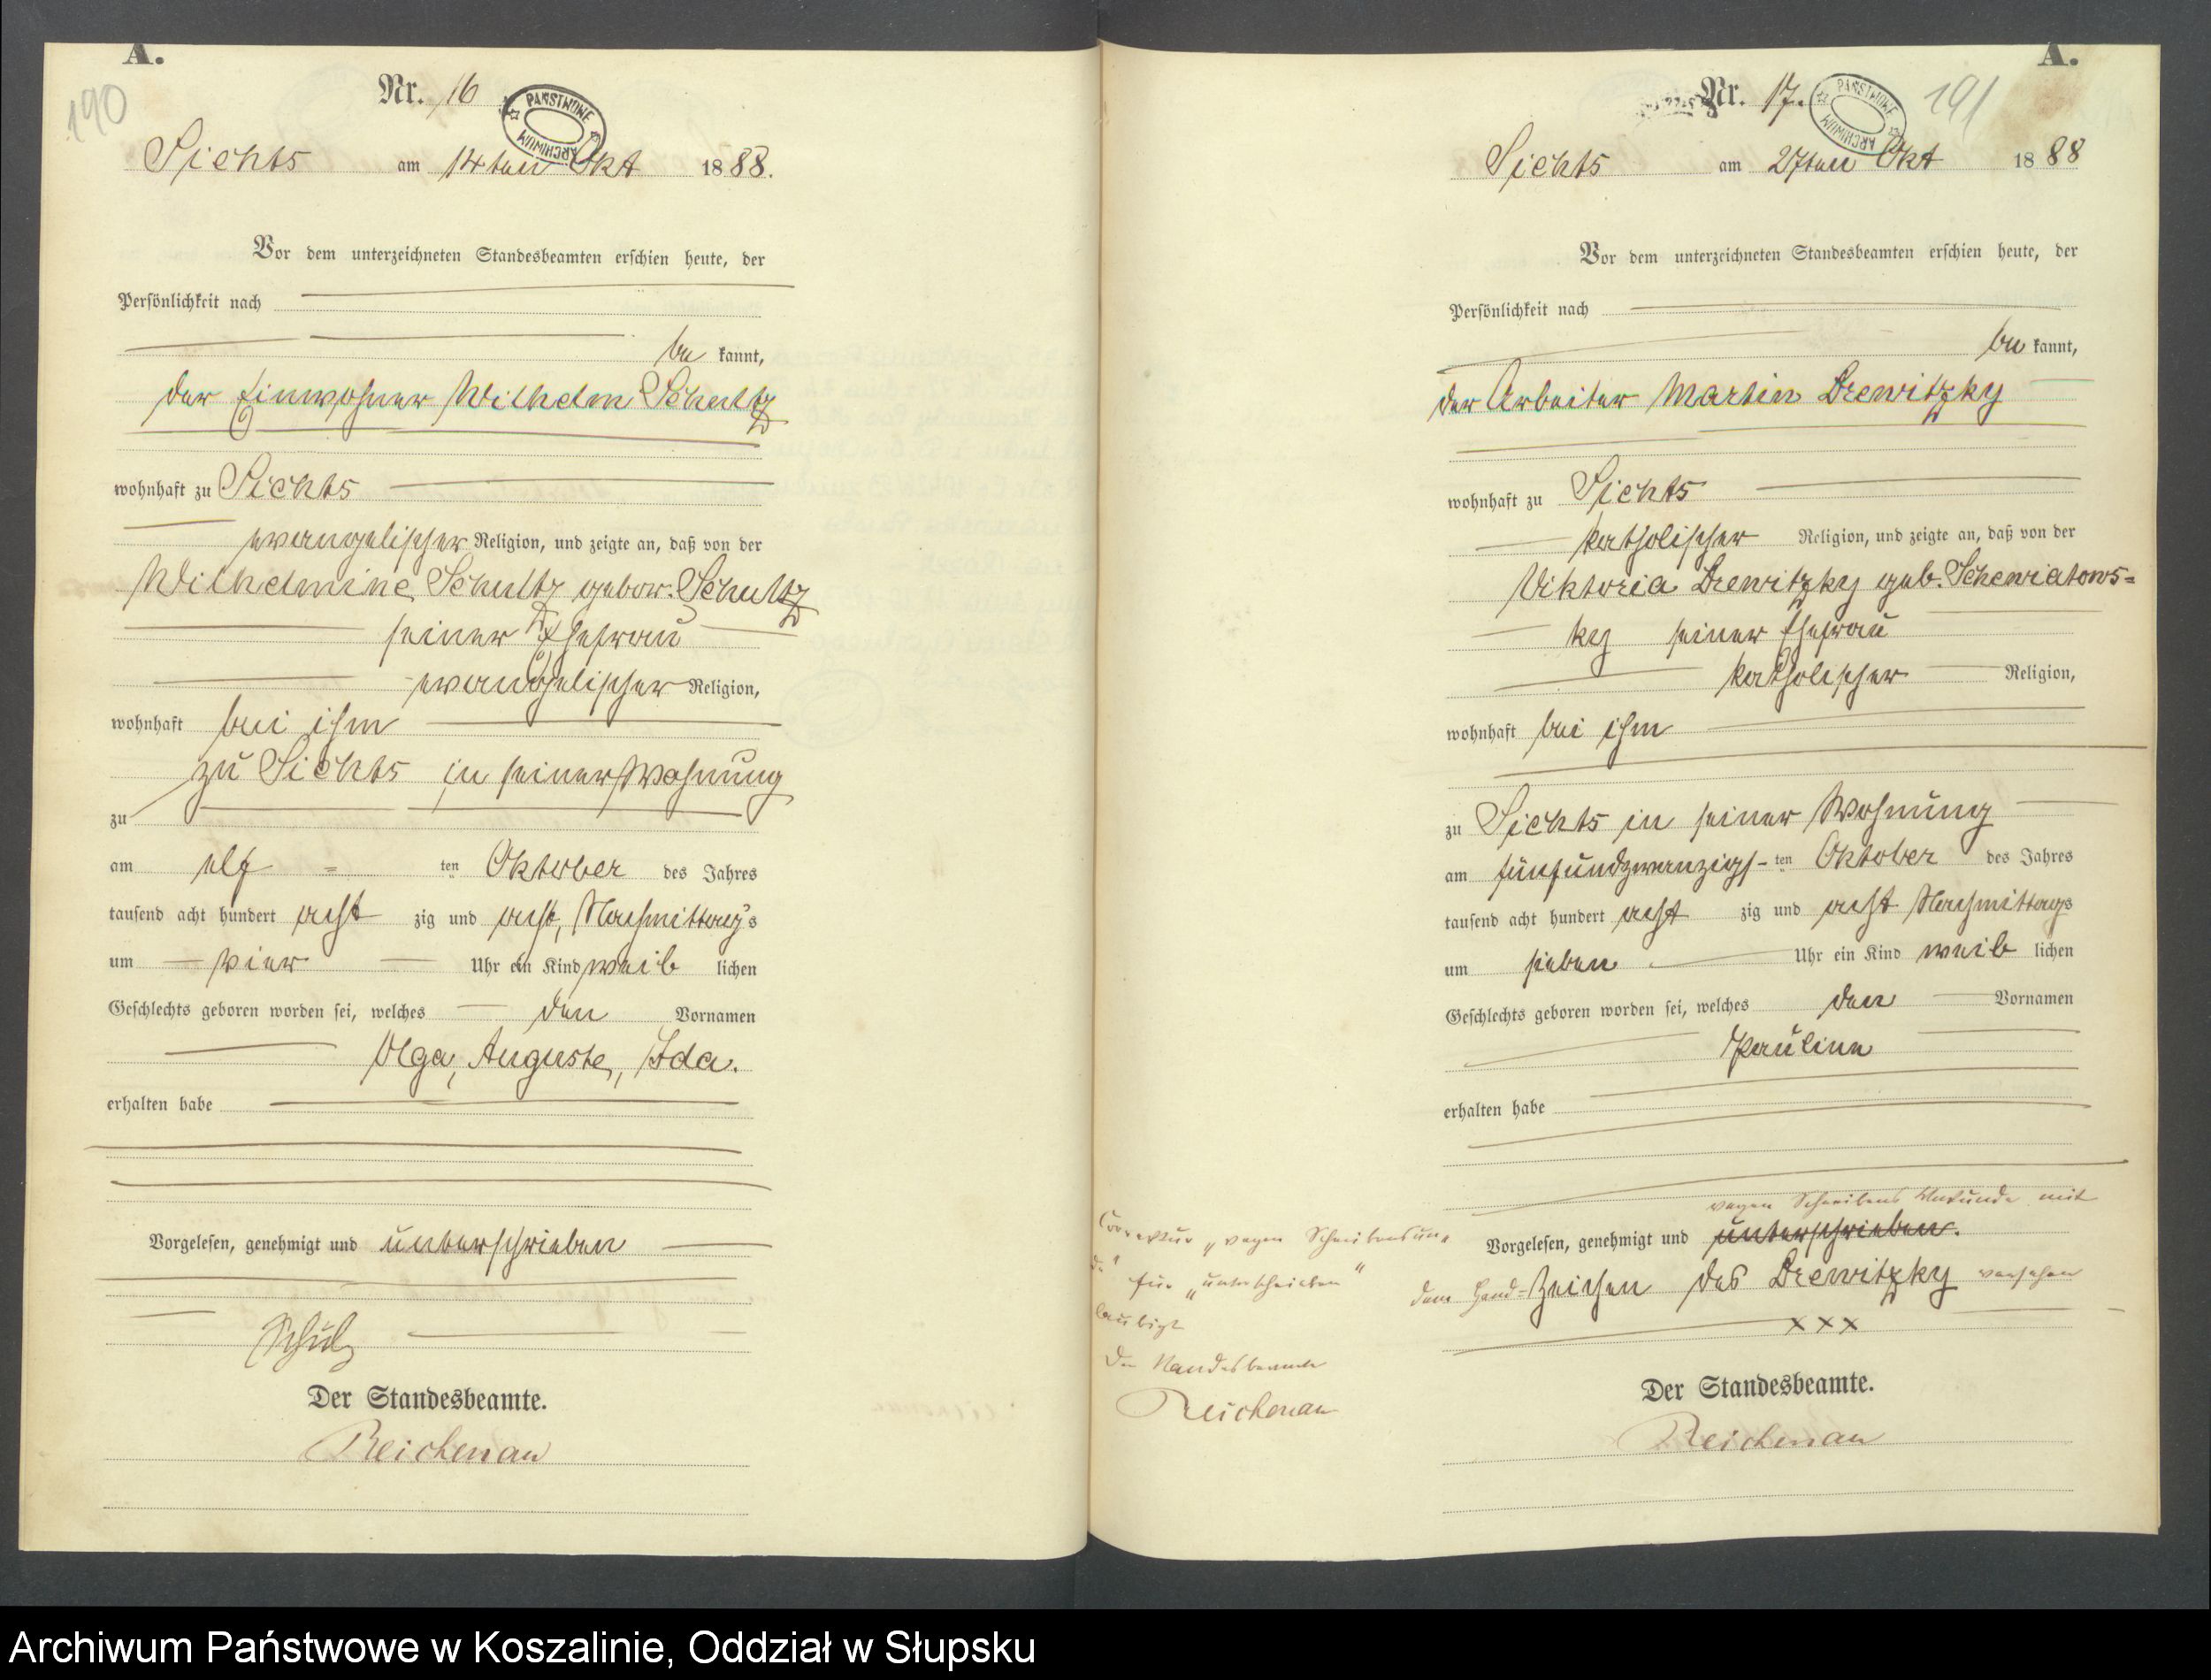 A.
190
Nr. 16
PAŃSTWOWE ARCHIWUM
Sichts am 14ten Okt 1888.
Vor dem unterzeichneten Standesbeamten erschien heute, der
Persönlichkeit nach
be kannt,
der Einwohner Wilhelm Schultz
wohnhaft zu Sichts
evangelischer Religion, und zeigte an, daß von der
Wilhelmine Schultz gebor. Schultz
seiner Ehefrau
evangelischer Religion,
wohnhaft bei ihm
zu Sichts in seiner Wohnung
zu
am elf ten Oktober des Jahres
tausend acht hundert acht zig und acht, Nachmittags
um vier Uhr ein Kind weib lichen
Geschlechts geboren worden sei, welches den Vornamen
Olga, Auguste, Ida.
erhalten habe
Vorgelesen, genehmigt und unterschrieben
Schulz
Der Standesbeamte.
Reichenau
A.
191
Nr. 17.
PAŃSTWOWE ARCHIWUM
Sichts am 27ten Okt 1888
Vor dem unterzeichneten Standesbeamten erschien heute, der
Persönlichkeit nach
be kannt,
der Arbeiter Martin Drewitzky
wohnhaft zu Sichts
katholischer Religion, und zeigte an, daß von der
Viktoria Drewitzky geb. Schewiatows=
ky seiner Ehefrau
katholischer Religion,
wohnhaft bei ihm
zu Sichts in seiner Wohnung
am fünfundzwanzigs- ten Oktober des Jahres
tausend acht hundert acht zig und acht Nachmittags
um sieben Uhr ein Kind weib lichen
Geschlechts geboren worden sei, welches den Vornamen
Pauline
erhalten habe
wegen Schreibens Unkunde mit
Vorgelesen, genehmigt und unterschrieben.
dem Hand-Zeichen des Drewitzky versehen
XXX
Der Standesbeamte.
Reichenau
Correktur „wegen Schreibensun
für „unterschrieben"
laubigt
Der Standesbeamte
Reichenau
Archiwum Państwowe w Koszalinie, Oddział w Słupsku